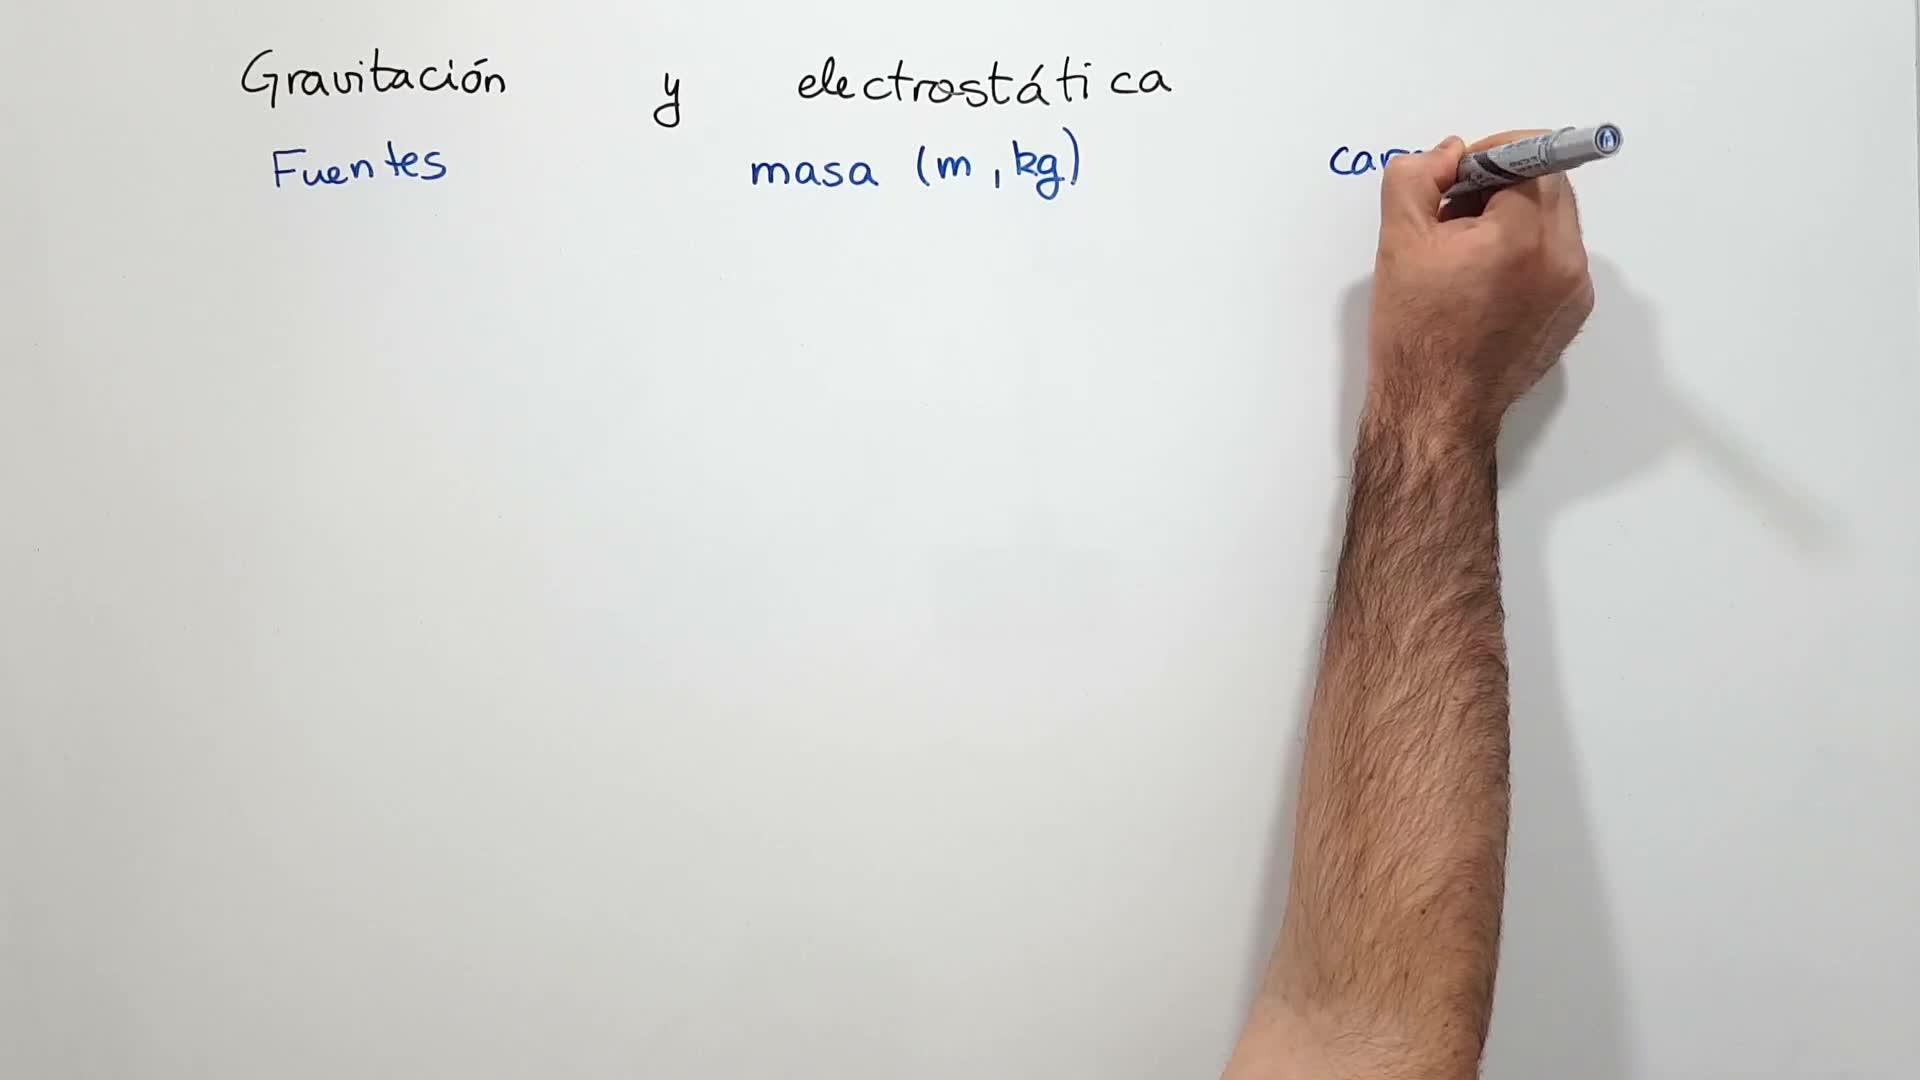 Gravitación y electrostática
Fuentes masa (m, kg)